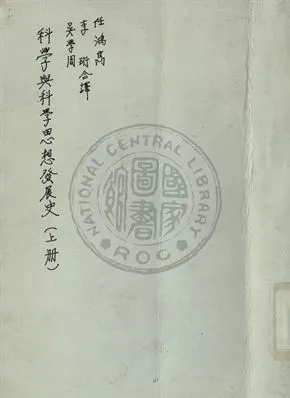 任鴻雋
李珩合譯
吳學周
科學與科學思想發展史(上冊)
NATIONAL CENTRAL LIBRARY
國家圖書館
ROC